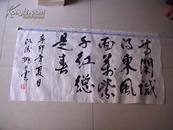 等闲識
得東風
面萬紫
千紅總
是春
辛卯年夏日
書